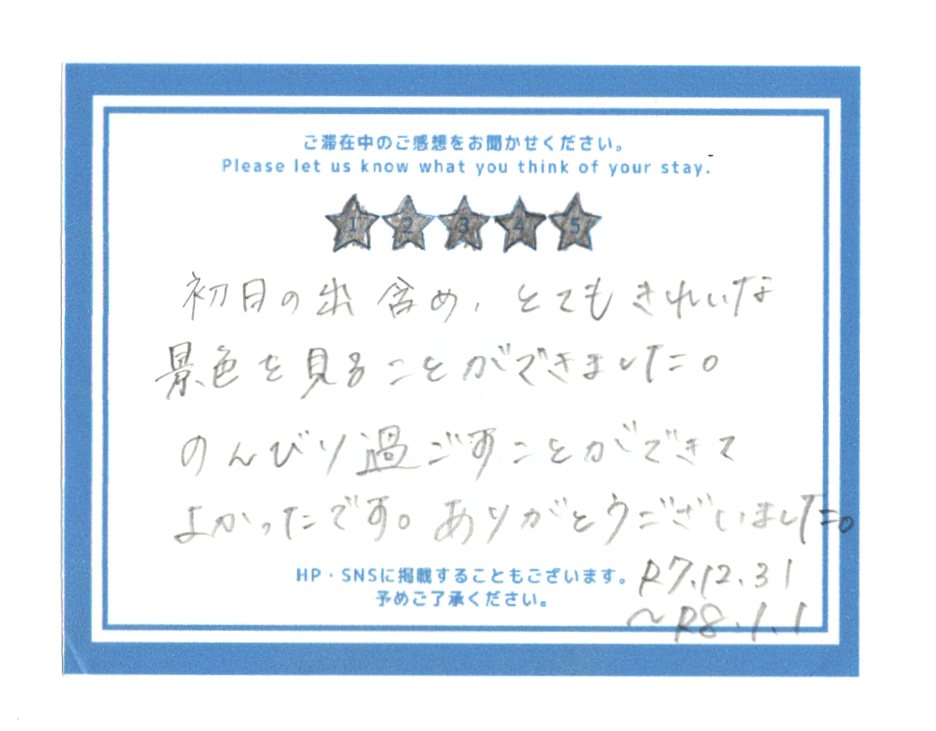 ご滞在中のご感想をお聞かせください。
Please let us know what you think of your stay.
1 2 3 4 5
初日の出含め、とてもきれいな
景色を見ることができました。
のんびり過ごすことができて
よかったです。ありがとうございました。
HP・SNSに掲載することもございます。
予めご了承ください。
R7.12.31
〜R8.1.1